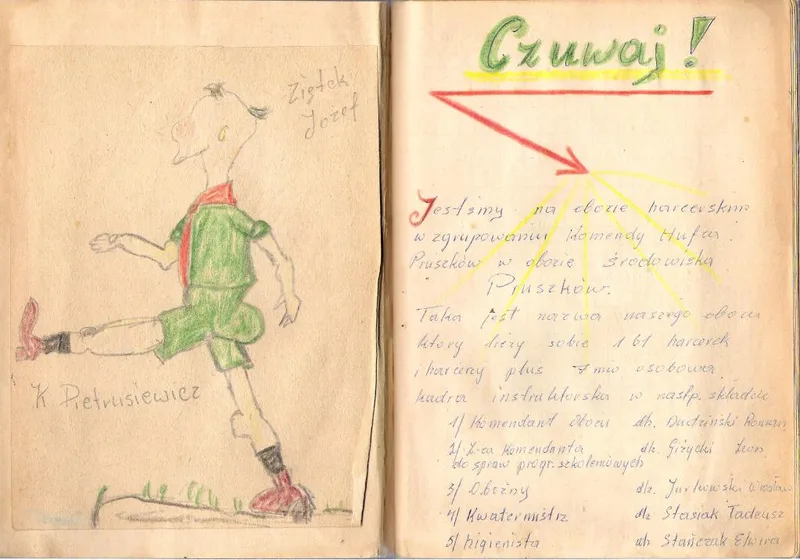 Ziętek
Józef
K Pietrusiewicz
Czuwaj!
Jesteśmy na obozie harcerskim
w zgrupowaniu Komendy Hufca
Pruszków w obozie środowiska
Pruszków.
Taka jest nazwa naszego obozu
który liczy sobie 161 harcerek
i harcerzy plus osobowa
kadra instruktorska w nastp. składzie
1/ Komendant obozu dh. Dudziński Roman
2/ Z-ca Komendanta dh. Giżycki Leon
do spraw progr. szkoleniowych
3/ Oboźny dh. Jurkowski
4/ Kwatermistrz dh Stasiak Tadeusz
5/ higienista dh Stańczak Elwira